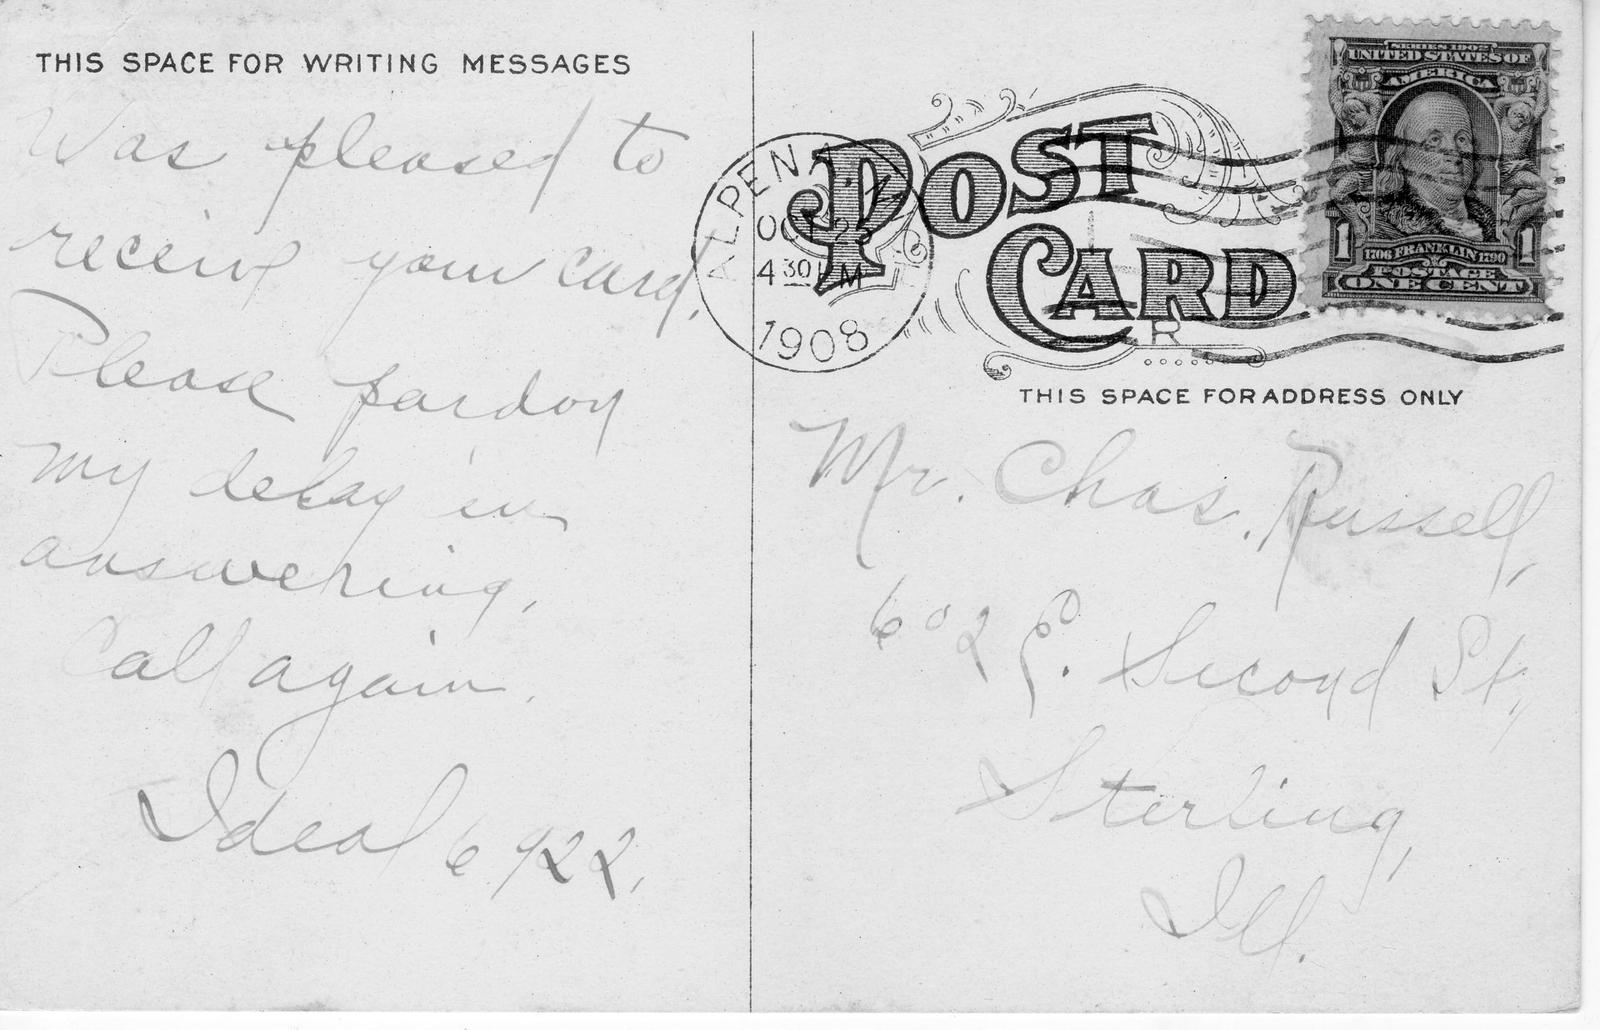 THIS SPACE FOR WRITING MESSAGES
Was pleased to
receive your card,
Please pardon
my delay in
answering,
Call again.
Ideal 6922,
ALPENA
OCT 23
4 30 PM
1908
POST
CARD
R
THIS SPACE FOR ADDRESS ONLY
SERIES 1902
UNITED STATES OF
AMERICA
1 1
1706 FRANKLIN 1790
POSTAGE
ONE CENT
Mr. Chas. Russell,
602 E. Second St.,
Sterling,
Ill.